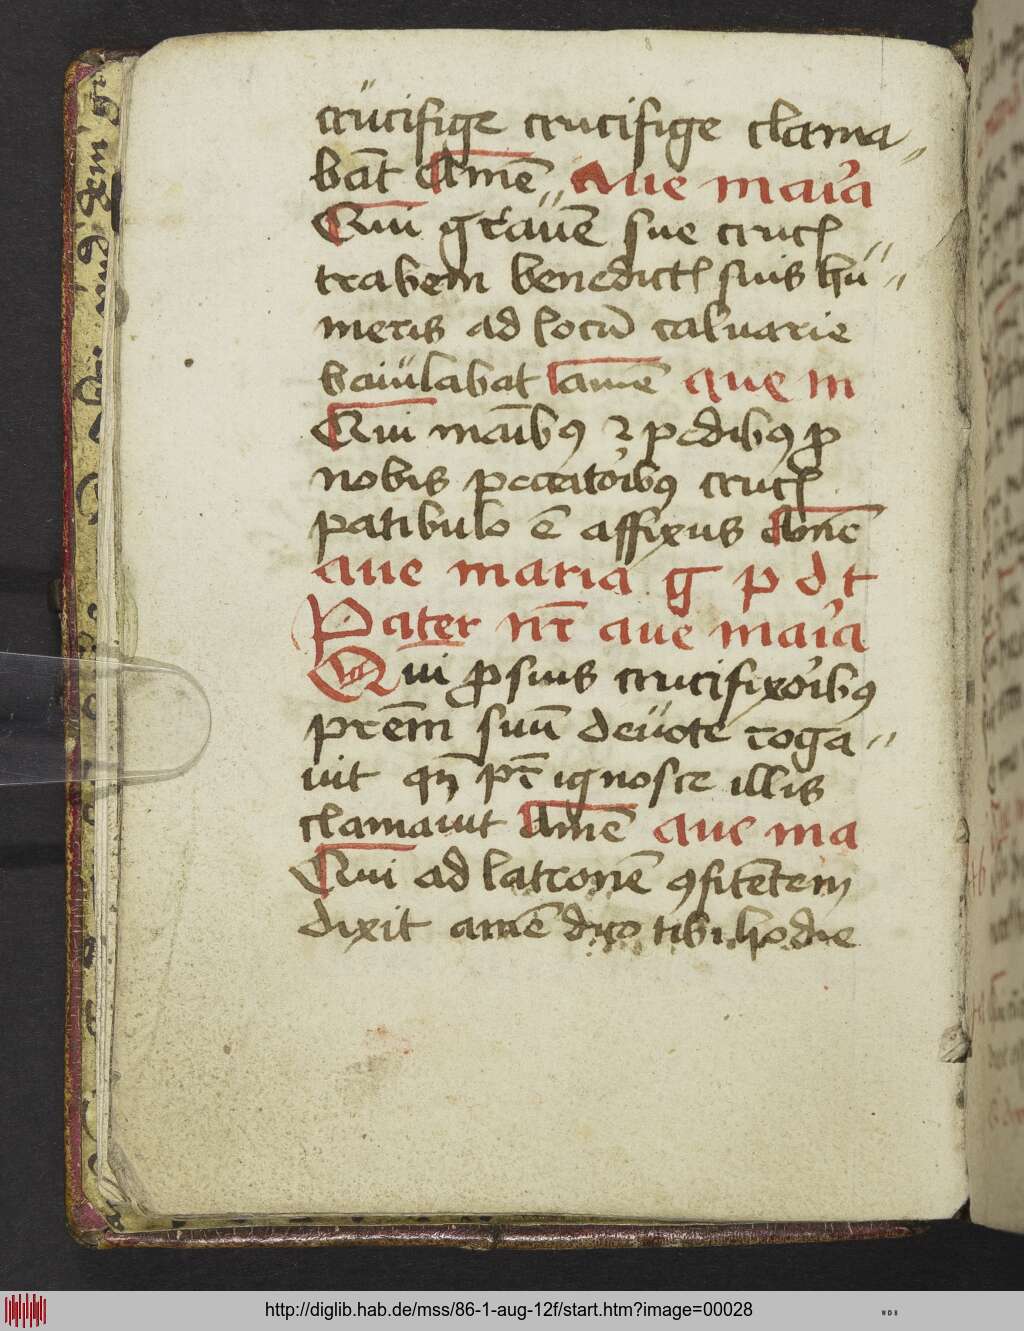 crucifige crucifige clama〃
bāt Amē Aue mai̾a
Qui grauē sue crucꝭ
trabem benedictꝭ suis hu〃
meris ad locū caluarie
baiulabat amē aue m
Qui maībꝰ ⁊ pedibꝰ ꝓ
nobis peccatoribꝰ crucꝭ
patibulo ē affixus Amē
aue maria g p d t
Pater nr̄ aue mai̾a
Qui ꝓ suis crucifixoribꝰ
prēm suū deuote roga〃
uit qn̄ pr̄ ignosce illis
clamauit Amē aue ma
Qui ad latronē ꝯfitētem
dixit amē dico tibi hodie
http://diglib.hab.de/mss/86-1-aug-12f/start.htm?image=00028